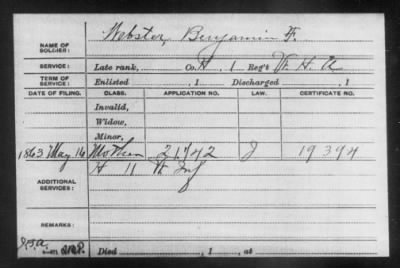 NAME OF SOLDIER: Webster, Benjamin F.
SERVICE: Late rank, Co. H, 1 Reg't Vt. H. A.
TERM OF SERVICE: Enlisted , 1 Discharged , 1
DATE OF FILING. CLASS. APPLICATION NO. LAW. CERTIFICATE NO.
Invalid,
Widow,
Minor,
1863 May 16 Mother 21742 J 19394
ADDITIONAL SERVICES: H 11 Vt Inf
REMARKS:
Died , 1 , at